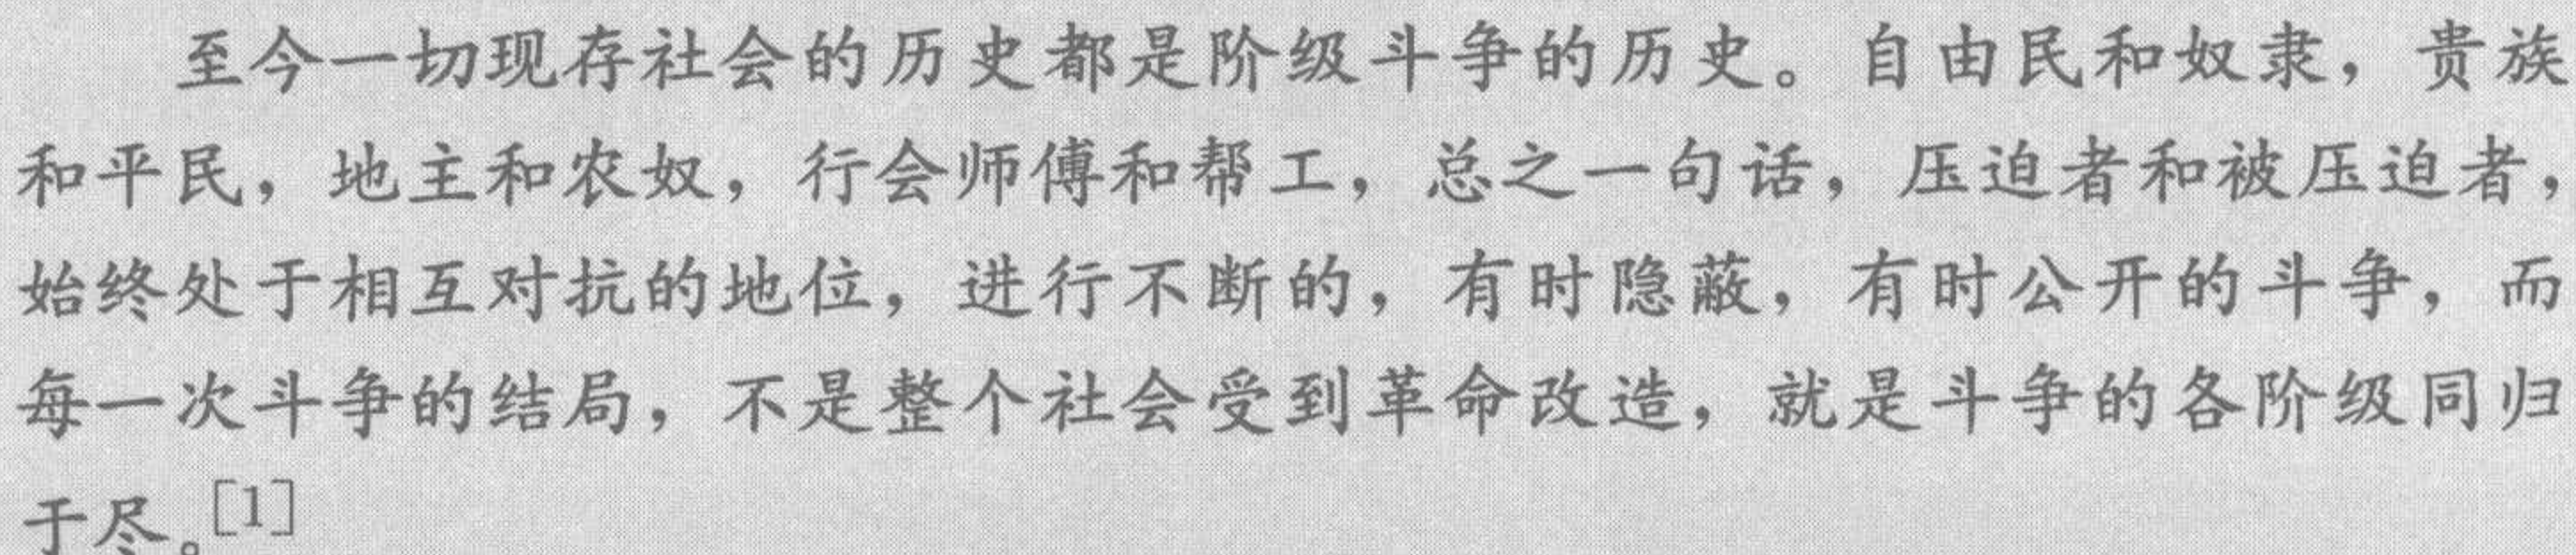 至今一切现存社会的历史都是阶级斗争的历史。自由民和奴隶，贵族
和平民，地主和农奴，行会师傅和帮工，总之一句话，压迫者和被压迫者，
始终处于相互对抗的地位，进行不断的，有时隐蔽，有时公开的斗争，而
每一次斗争的结局，不是整个社会受到革命改造，就是斗争的各阶级同归
于尽。[1]